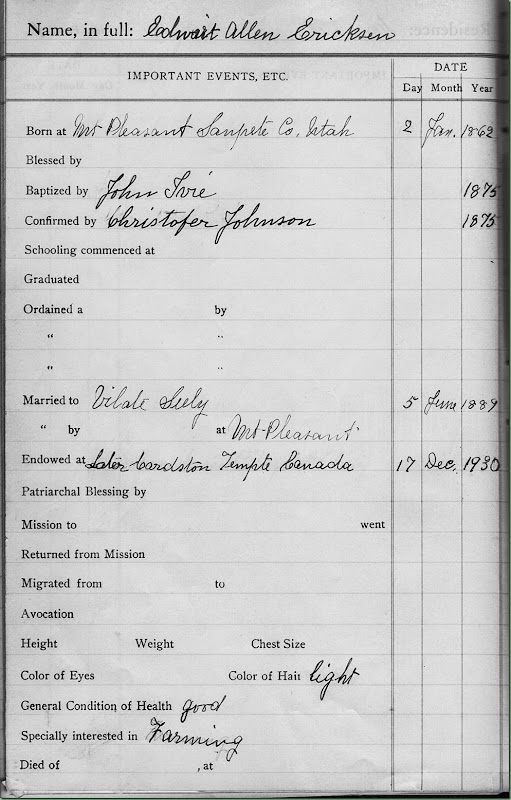 Name, in full: Edwart Allen Ericksen
IMPORTANT EVENTS, ETC. DATE
Day Month Year
Born at Mt Pleasant Sanpete Co, Utah 2 Jan. 1862
Blessed by
Baptized by John Ivie 1875
Confirmed by Christofer Johnson 1875
Schooling commenced at
Graduated
Ordained a by
" "
" "
Married to Vilate Seely 5 June 1889
" by at Mt-Pleasant
Endowed at Later Cardston Temple Canada 17 Dec. 1930
Patriarchal Blessing by
Mission to went
Returned from Mission
Migrated from to
Avocation
Height Weight Chest Size
Color of Eyes Color of Hair light
General Condition of Health good
Specially interested in Farming
Died of , at